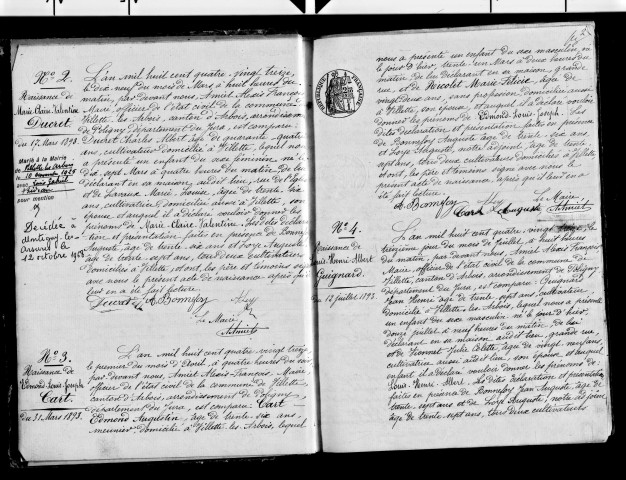 N° 2.
Naissance de
Marie Claire Valentine
Ducret
du 17 Mars 1893.
Marié à la Mairie
de Villette les Arbois
le 28 novembre 1925
avec
pour mention
Décédée à
Montigny les
Arsures le
12 octobre 1968
L'an mil huit cent quatre vingt treize,
le dix neuf du mois de Mars à huit heures du
matin, par devant nous Amiet Alexis François
Maire, officier de l'état civil de la commune de
Villette les Arbois, canton d'Arbois, arrondissement
de Poligny, département du Jura, est comparu
Ducret Charles Albert âgé de quarante quatre
ans, cultivateur domicilié à Villette, lequel nous
a présenté un enfant du sexe féminin, né le
dix sept Mars à quatre heures du matin, de lui
déclarant en sa maison, audit lieu, rue de
et de Marie Louise, âgée de trente six
ans, cultivatrice domiciliée aussi à Villette, son
épouse, et auquel il a déclaré vouloir donner les
prénoms de Marie Claire Valentine. Lesdites déclara-
tion et présentation faites en présence de Bonnefoy
Auguste, âgé de trente six ans et Loye Auguste
âgé de trente sept ans, tous deux cultivateurs
domiciliés à Villette, et ont, les père et témoins signé
avec nous le présent acte de naissance après qu'il
leur en a été fait lecture.
Ducret A. Bonnefoy Loye
Le Maire
Amiet
N° 3.
Naissance de
Edmond Louis Joseph
Cart.
du 31 Mars 1893.
L'an mil huit cent quatre vingt treize
le premier du mois d'Avril à quatre heures du soir,
par devant nous, Amiet Alexis François, Maire
officier de l'état civil de la commune de Villette,
canton d'Arbois, arrondissement de Poligny,
département du Jura, est comparu Cart
Edmond Augustin, âgé de trente six ans,
meunier domicilié à Villette les Arbois, lequel
nous a présenté un enfant du sexe masculin, né
le jour d'hier, trente un Mars à deux heures du
matin, de lui déclarant en sa maison, grande
rue, et de Hercelot Marie Félicie, âgée de
vingt deux ans, sans profession domiciliée aussi
à Villette, son épouse, et auquel il a déclaré vouloir
donner les prénoms de Edmond Louis Joseph. Les
dites déclaration et présentation faites en présence
de Bonnefoy Auguste, âgé de trente six ans
et Loye Auguste, notre adjoint, âgé de trente
sept ans, tous deux cultivateurs domiciliés à Villette,
et ont, les père et témoins signé avec nous le
présent acte de naissance, après qu'il leur en a
été fait lecture.
A. Bonnefoy Loye Le Maire
Cart Auguste Amiet
N° 4.
Naissance de
Louis Henri Albert
Guignard.
du 12 juillet 1893.
L'an mil huit cent quatre vingt treize, le
treizième jour du mois de Juillet, à huit heures
du matin, par devant nous, Amiet Alexis François
Maire, officier de l'état civil de la commune de
Villette, canton d'Arbois, arrondissement de Poligny
département du Jura, est comparu Guignard
Jean Henri âgé de trente ans, cultivateur
domicilié à Villette, lequel nous a présenté
un enfant du sexe masculin né le jour d'hier,
douze juillet, à neuf heures du matin, de lui
déclarant en sa maison, audit lieu, grande rue
et de Vionnet Julie âgée de vingt neuf ans,
cultivatrice aussi audit lieu, son épouse, et auquel
enfant il a déclaré vouloir donner les prénoms de
Louis Henri Albert. Lesdites déclaration et présentation
faites en présence de Bonnefoy Jean Auguste âgé de
trente sept ans et de Loye Auguste, notre adjoint,
âgé de trente sept ans, tous deux cultivateurs